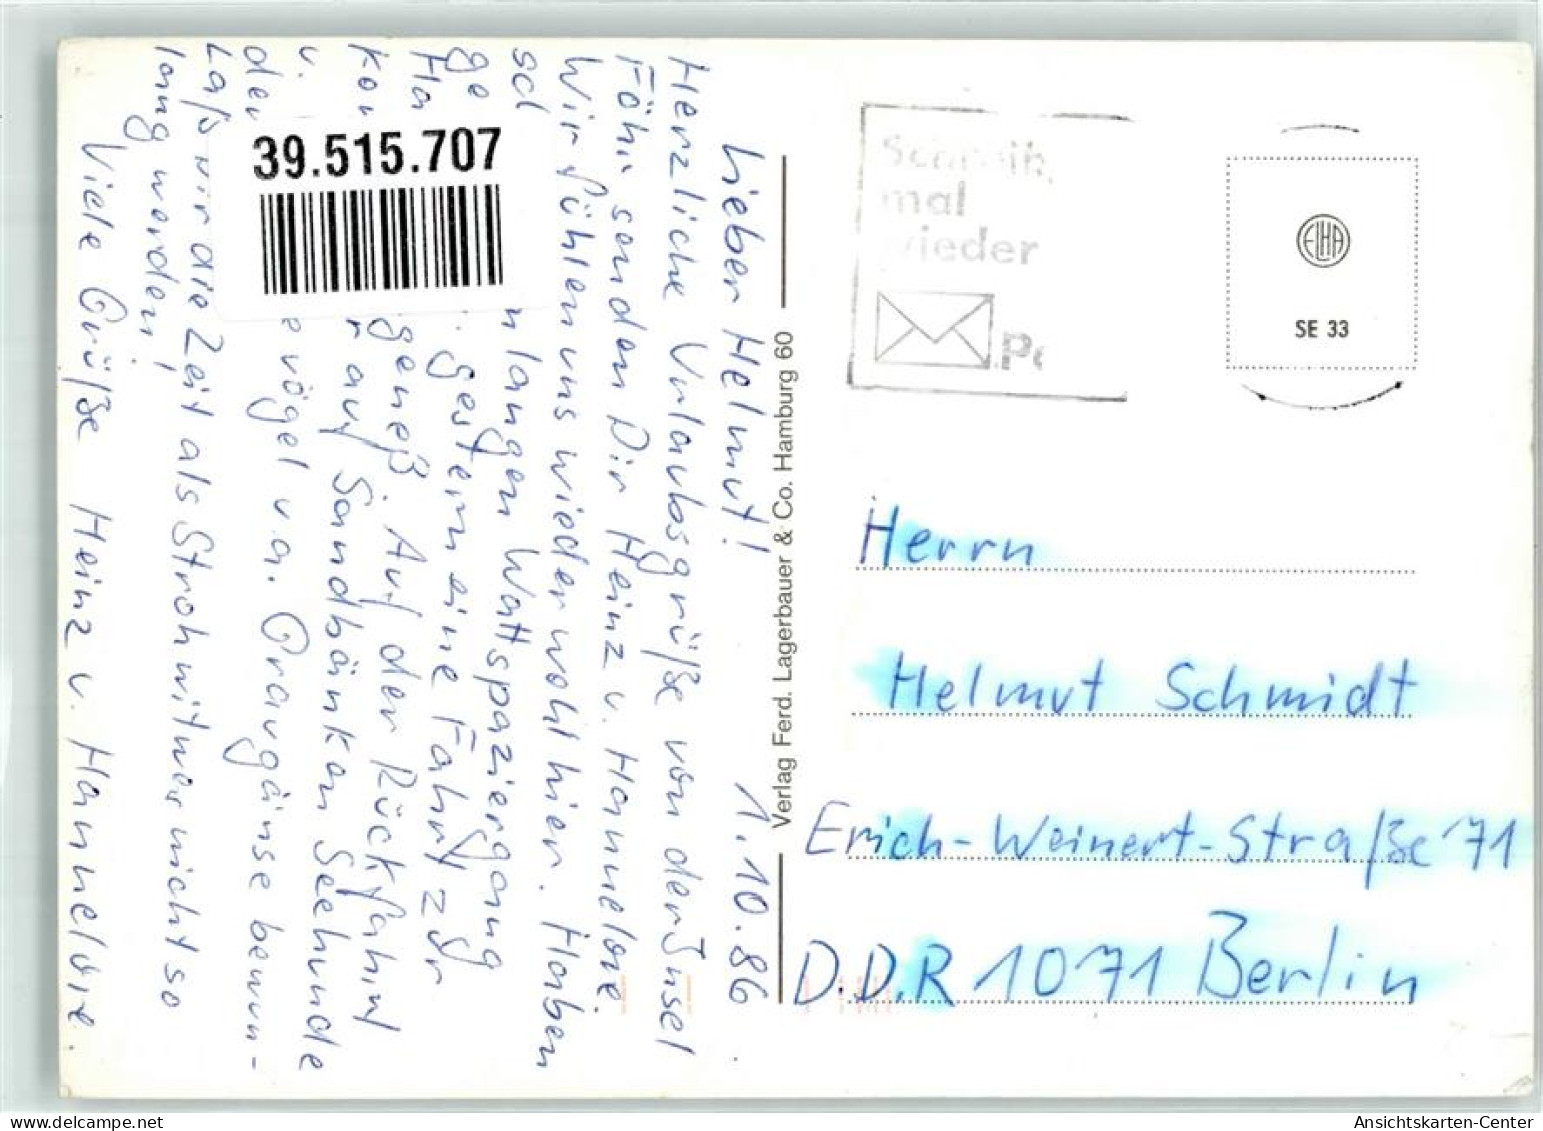 Lieber Helmut! 1.10.86.
Herzliche Urlaubsgrüße von der Insel
Föhr senden Dir Heinz u. Hannelore.
Wir fühlen uns wieder wohl hier. Haben
sc n langen Wattspaziergang
ge . Gestern eine Fahrt zur
Ha geneß. Auf der Rückfahrt
kon r auf Sandbänken Seehunde
u. e vögel u.a. Graugänse bewun-
der
Laß wir die Zeit als Strohwitwer nicht so
lang werden!
Viele Grüße Heinz u. Hannelore.
39.515.707
Verlag Ferd. Lagerbauer & Co. Hamburg 60
Schreib
mal
wieder
Po
ELHA
SE 33
Herrn
Helmut Schmidt
Erich-Weinert-Straße 71
D.D.R 1071 Berlin
delcampe.net
Ansichtskarten-Center